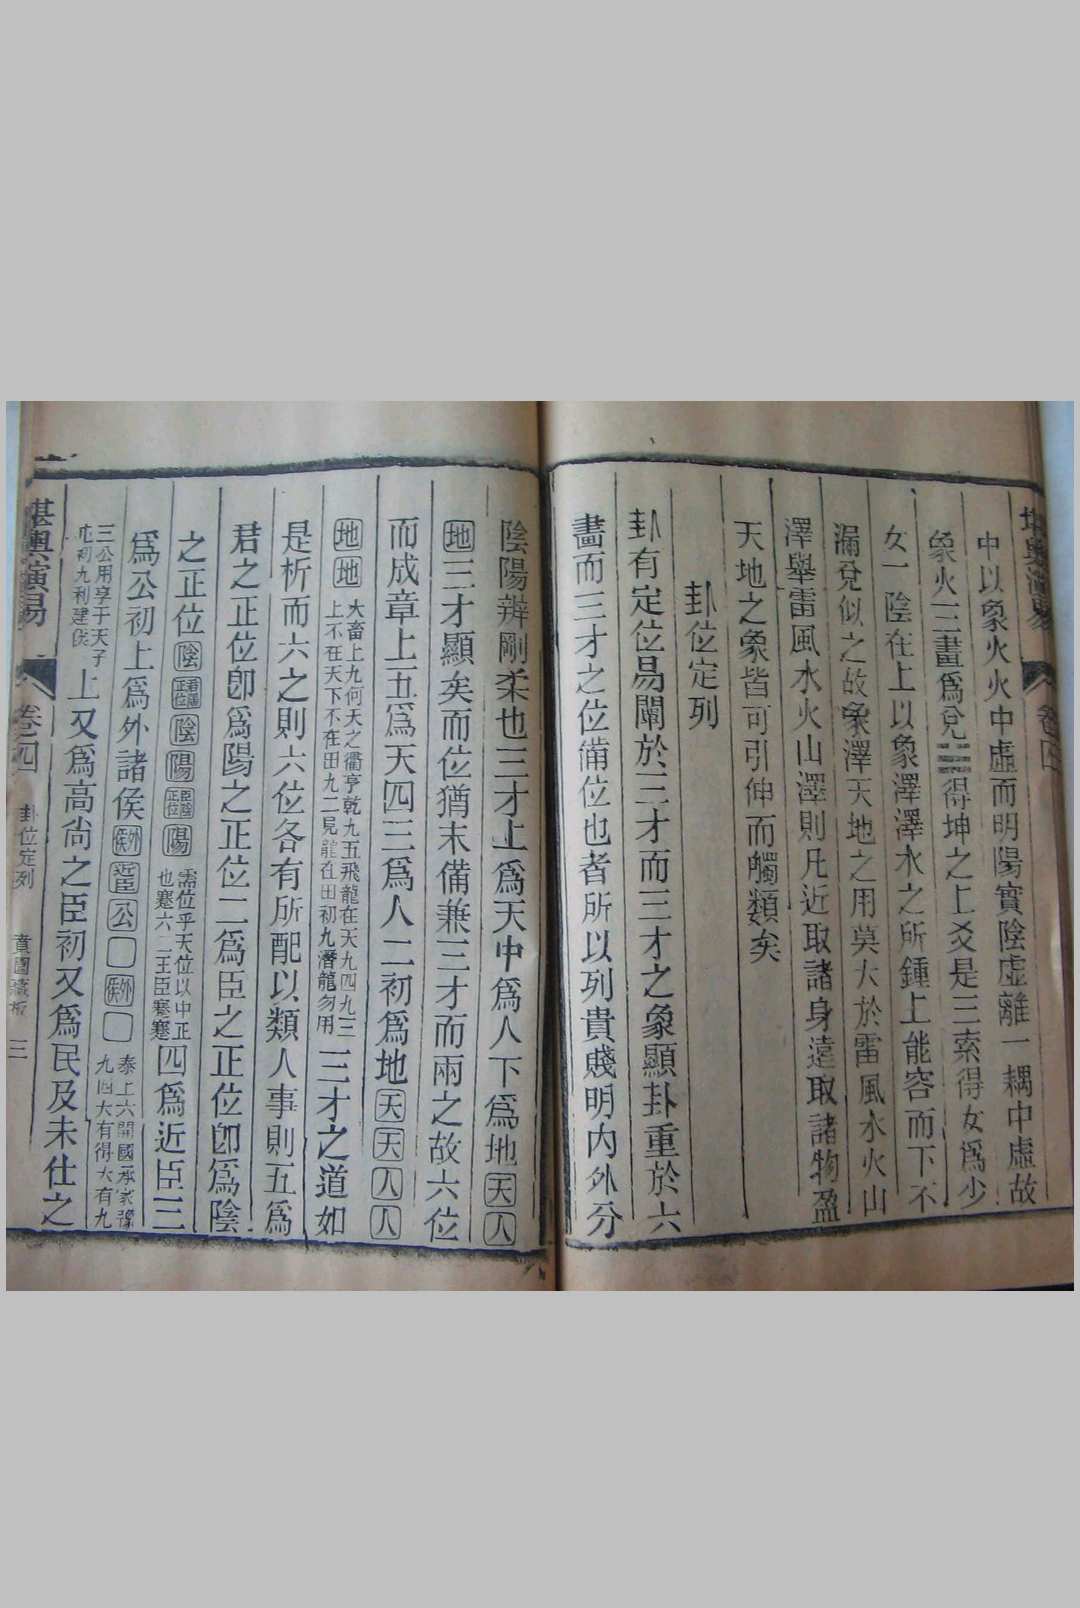 中以象火火中虛而明陽實陰虛離一耦中虛故
象火三畫爲兌☱得坤之上爻是三索得女爲少
女一陰在上以象澤澤水之所鍾上能容而下不
漏兌似之故象澤天地之用莫大於雷風水火山
澤舉雷風水火山澤則凡近取諸身遠取諸物盈
天地之象皆可引伸而觸類矣
卦位定列
卦有定位易闡於三才而三才之象顯卦重於六
畫而三才之位備位也者所以列貴賤明內外分
陰陽辨剛柔也三才止爲天中爲人下爲地天人
地三才顯矣而位猶未備兼三才而兩之故六位
而成章上五爲天四三爲人二初爲地天天人人
地地
大畜上九何天之衢亨乾九五飛龍在天九四九三
上不在天下不在田九二見龍在田初九潛龍勿用
三才之道如
是析而六之則六位各有所配以類人事則五爲
君之正位卽爲陽之正位二爲臣之正位卽爲陰
之正位陰
君陽正位
陰陽
臣陰正位
陽
需位乎天位以中正
也蹇六二王臣蹇蹇
四爲近臣三
爲公初上爲外諸侯外侯近臣公外侯
泰上六開國承家豫
九四大有得大有九
三公用享于天子
屯初九利建侯
上又爲高尚之臣初又爲民及未仕之
堪輿演易
卷四
卦位定列
三